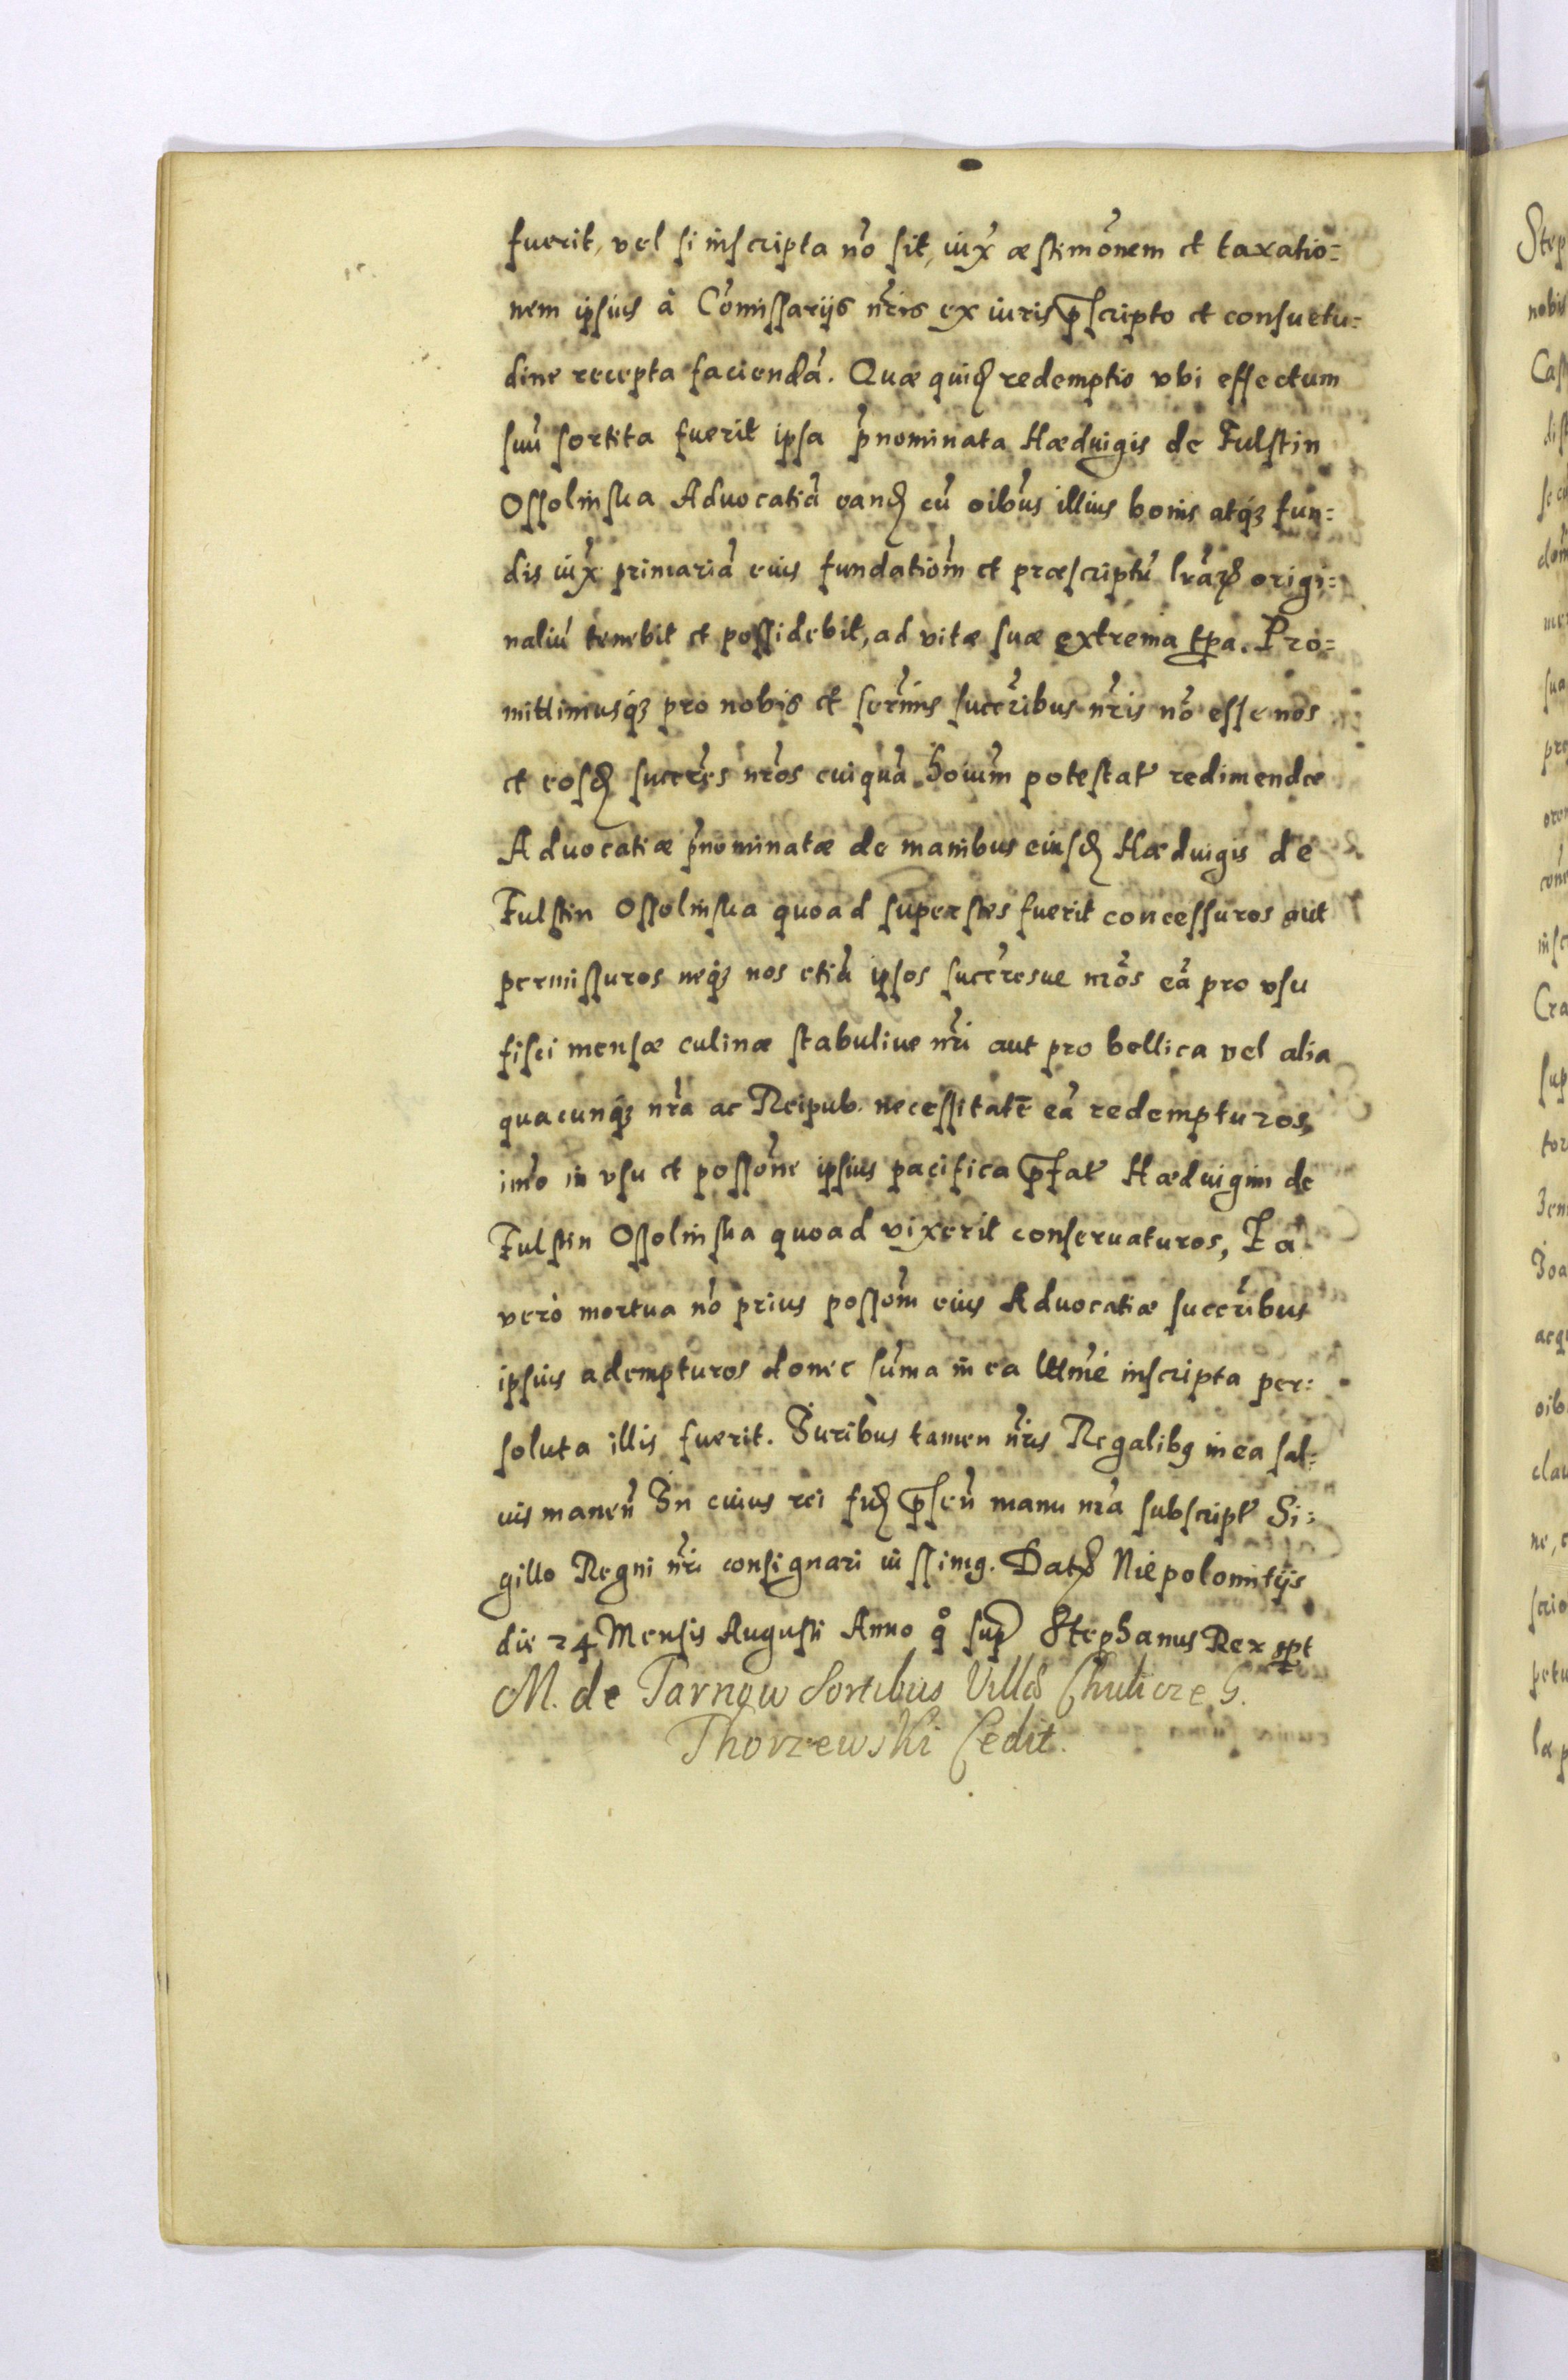 fuerit, vel si inscripta nō sit, iux̄ æstimōnem et taxatio=
nem ipsius à Com̄issarijs nr̄is ex iuris p̄scripto et consuetu=
dine recepta faciendā. Quæ quiđ redemptio vbi effectum
suū sortita fuerit ipsa p̄nominata Hæduigis de Fulstin
Ossolinska Aduocatiā eanđ cū oībus illius bonis atq3 fun=
dis iux̄ primariā eius fundatiōm et præscriptū lrārꝝ origi=
naliū tenebit et possidebit, ad vitæ suæ extrema tp̄a. Pro=
mittimusq3 pro nobis et sern̄is succr̄ibus nr̄is nō esse nos
et eosđ succr̄es nr̄os cuiquā hoīum potestat̄ redimendæ
Aduocatiæ p̄nominatæ de manibus eiusđ Hæduigis de
Fulstin Ossolinska quoad superstes fuerit concessuros aut
permissuros neq3 nos etiā ipsos succr̄esue nr̄os eā pro vsu
fisci mensæ culinæ stabuliue nr̄i aut pro bellica vel alia
quacunq3 nr̄a ac Reipub. necessitatē eā redempturos,
im̄o in vsu et possōne ipsius pacifica p̄fat̄ Hæduigim de
Fulstin Ossolinska quoad vixerit conseruaturos, Ea
verò mortua nō prius possōm eius Aduocatiæ succr̄ibus
ipsius adempturos donec sum̄a in ea lttm̄e inscripta per=
soluta illis fuerit. Iuribus tamen nr̄is Regalibꝯ in ea sal=
uis maneñ In cuius rei fiđ p̄señ manu nr̄a subscript̄ Si=
gillo Regni nr̄i consignari iussimꝯ. Datꝝ Niepolomitijs
die 24 Mensis Augusti Anno q̊ sup̄ Stephanus Rex spt
M. de Tarnow Sortibus Villæ Chulicze G.
Thorzewski Cedit.